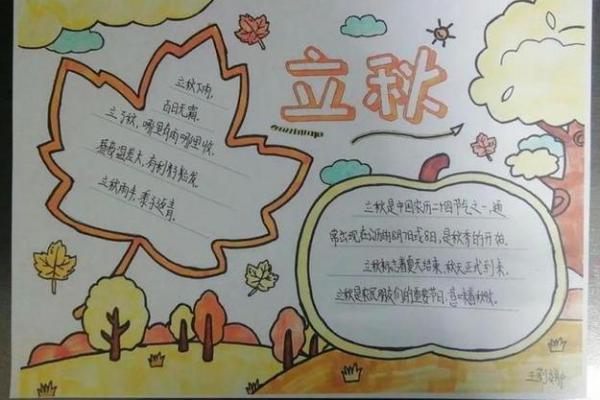 立秋
立秋下雨,
百日无霜.
立了秋,哪里有雨哪里收.
昼夜温差大,有利籽粒发.
立秋雨来,
立秋是中国农历二十四节气之一,通
常出现在公历的8月7日或8日,是秋季的开始.
立秋标志着夏天结束,秋天正式到来.
立秋是农民朋友们的重要节日,意味着秋收.